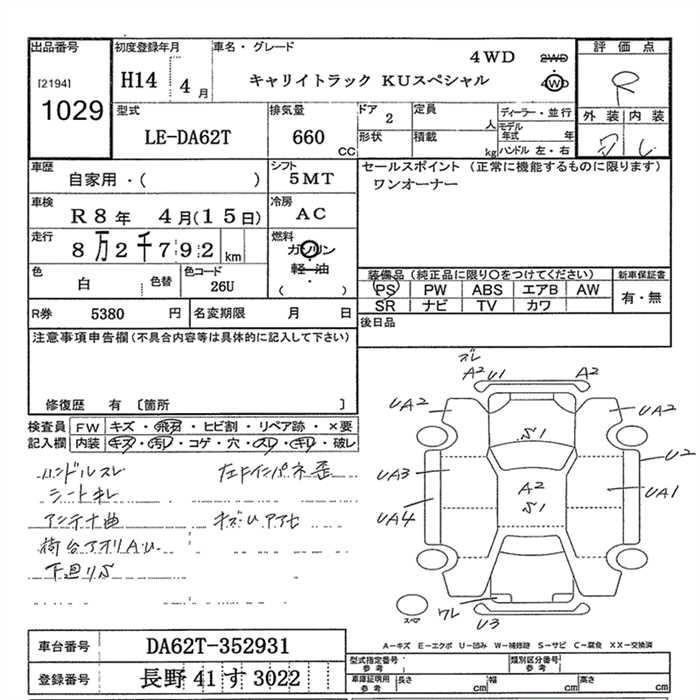 出品番号
[2194]
1029
初度登録年月
H14 4月
車名・グレード
4WD 2WD
キャリイトラック KUスペシャル 4WD
評価点
R
外装 内装
型式
LE-DA62T
排気量
660 CC
ドア 2
定員 人
形状
積載 kg
ディーラー・並行
モデル年式 年
ハンドル 左・右
車歴
自家用・( )
シフト
5MT
セールスポイント (正常に機能するものに限ります)
ワンオーナー
車検
R8年 4月(15日)
冷房
AC
走行
8万2千792 km
燃料
ガソリン
軽油
( )
色
白
色替
色コード
26U
装備品 (純正品に限り○をつけてください)
PS PW ABS エアB AW
SR ナビ TV カワ
新車保証書
有・無
R券 5380 円
名変期限 月 日
後日品
注意事項申告欄(不具合内容等は具体的に記入して下さい)
修復歴 有 〔箇所 〕
検査員 FW キズ・飛石・ヒビ割・リペア跡・×要
記入欄 内装 キズ・汚れ・コゲ・穴・スレ・キレ・破レ
ハンドルスレ
シートキレ
アンテナ曲
荷台アオリAU
下廻りS
左ドインパネ歪
キズUアアセ
ズレ
A2 U1 A2
UA2 UA2
S1
U2
UA3 A2 UA1
S1
UA4
スペア
ワレ
U3
A－キズ E－エクボ U－凹み W－補修跡 S－サビ C－腐食 XX－交換済
車台番号 DA62T-352931
登録番号 長野 41 す 3022
型式指定番号
参考
類別区分番号
参考
車庫証明用
参考
長さ cm
幅 cm
高さ cm